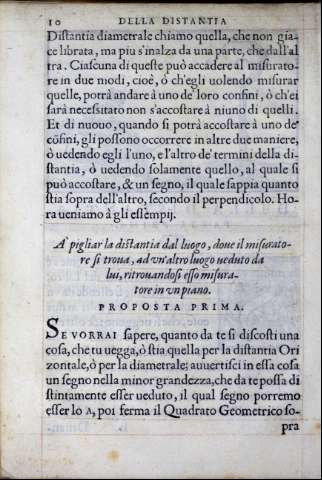 10 DELLA DISTANTIA
Distantia diametrale chiamo quella, che non gia
ce librata, ma piu s'inalza da una parte, che dall'al
tra. Ciascuna di queste può accadere al misurato-
re in due modi, cioè, ò ch'egli uolendo misurar
quelle, potrà andare à uno de' loro confini, ò ch'ei
sarà necessitato non s'accostare à niuno di quelli.
Et di nuouo, quando si potrà accostare à uno de'
cōfini, gli possono occorrere in altre due maniere,
ò uedendo egli l'uno, e l'altro de' termini della di-
stantia, ò uedendo solamente quello, al quale si
può accostare, & un segno, il quale sappia quanto
stia sopra dell'altro, secondo il perpendicolo. Ho-
ra veniamo à gli essempij.
A' pigliar la distantia dal luogo, doue il misurato-
re si troua, ad vn'altro luogo veduto da
lui, ritrouandosi esso misura-
tore in vn piano.
PROPOSTA PRIMA.
SE VORRAI sapere, quanto da te si discosti una
cosa, che tu uegga, ò stia quella per la distantia Ori
zontale, ò per la diametrale; auuertisci in essa cosa
un segno nella minor grandezza, che da te possa di
stintamente esser ueduto, il qual segno porremo
esser lo A, poi ferma il Quadrato Geometrico so-
pra